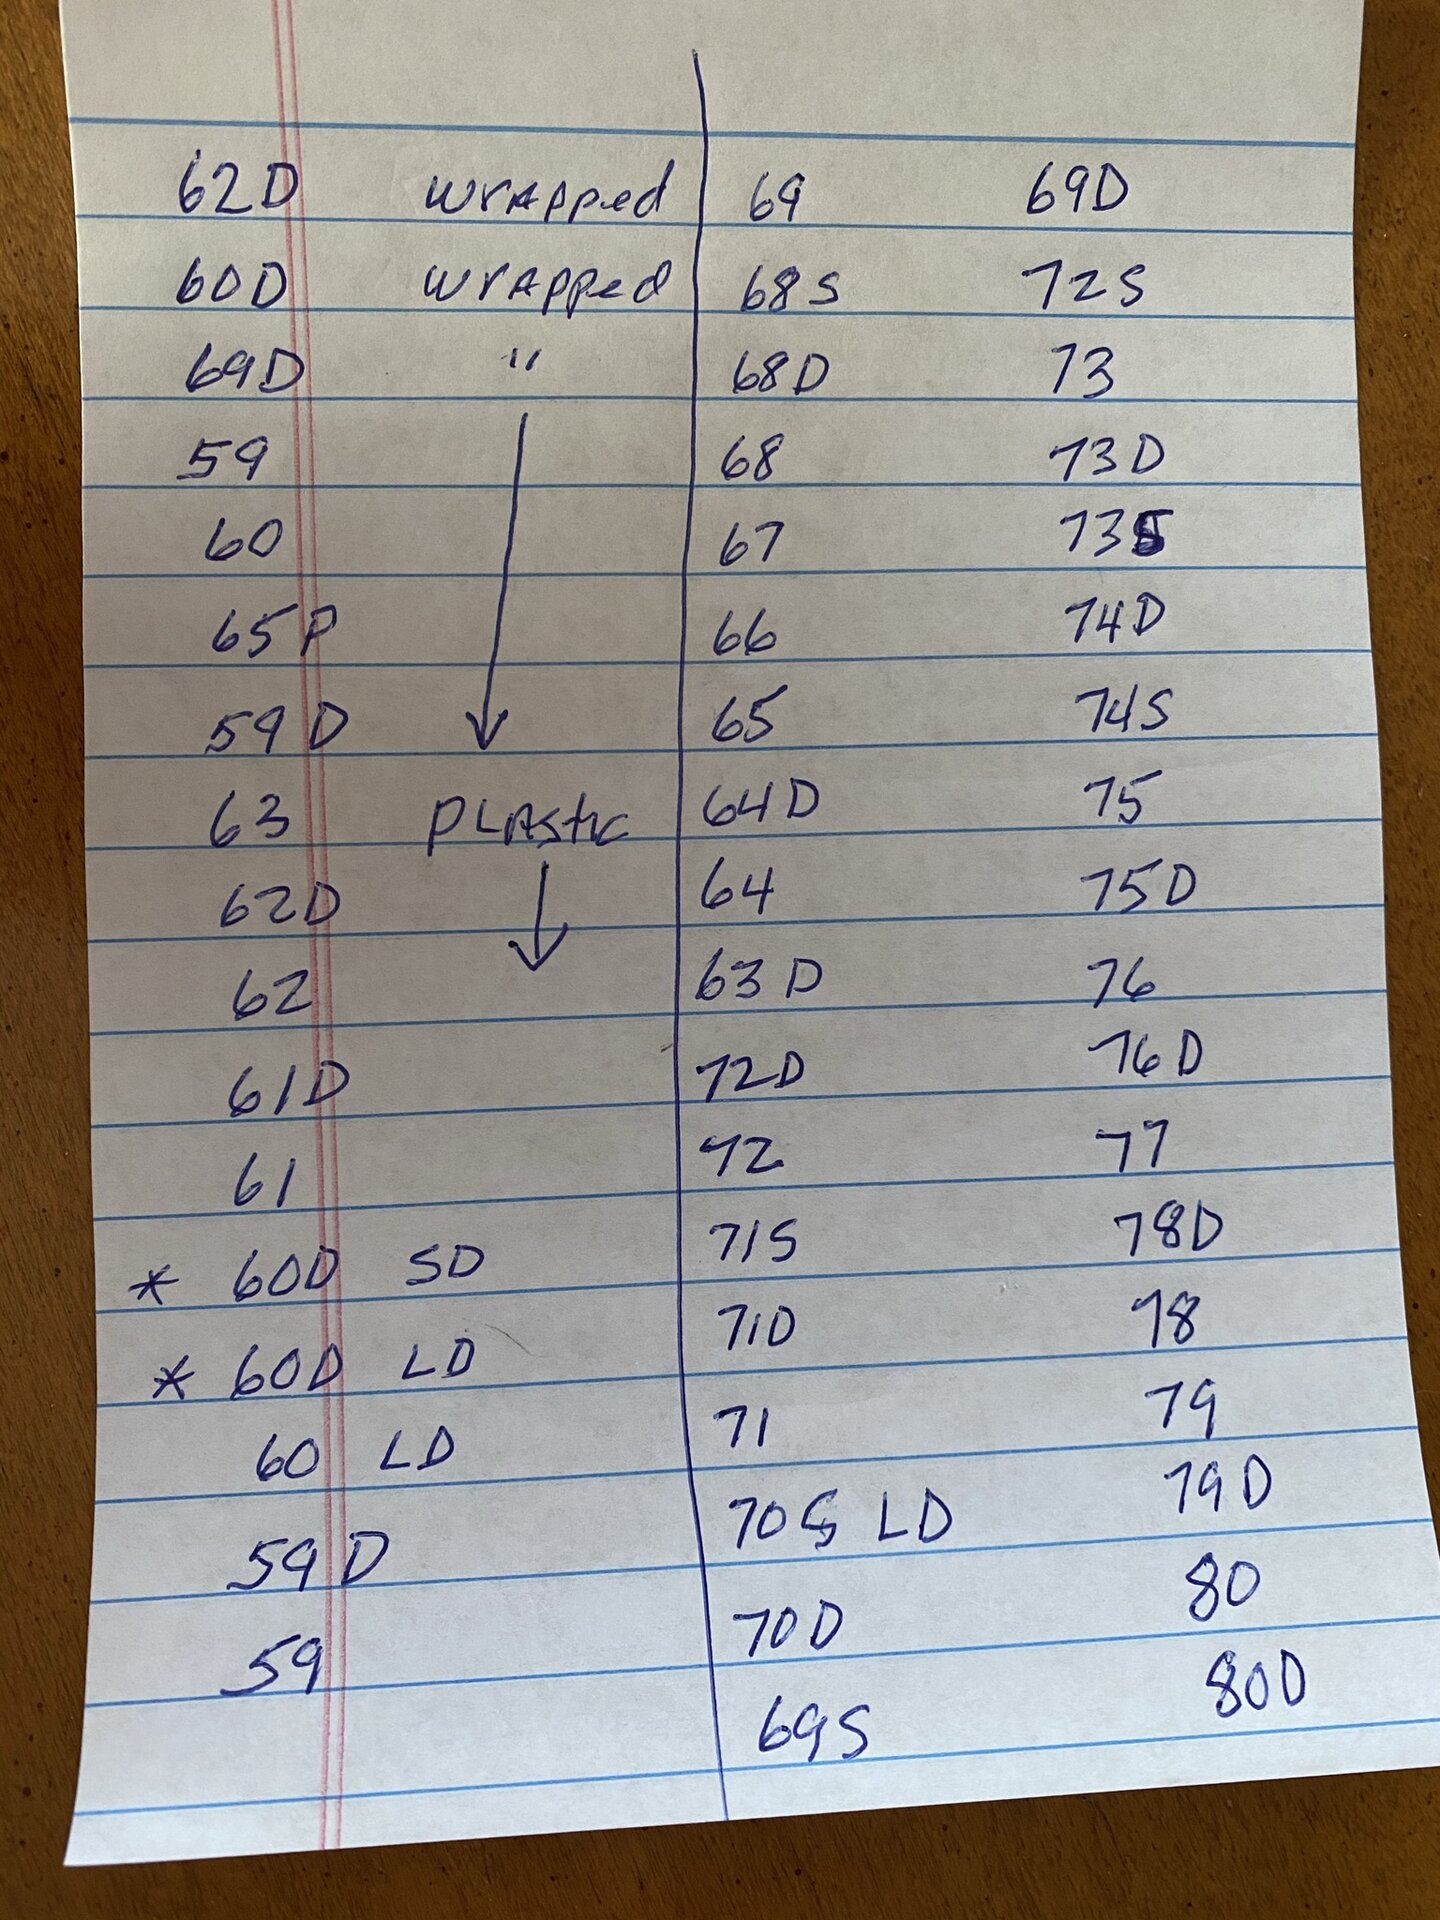 62D wrapped
60D wrapped
69D "
59
60
65P
59D
63 PLAStic
62D
62
61D
61
* 60D SD
* 60D LD
60 LD
59D
59
69
68S
68D
68
67
66
65
64D
64
63D
72D
72
71S
71D
71
70S LD
70D
69S
69D
72S
73
73D
73S
74D
74S
75
75D
76
76D
77
78D
78
79
79D
80
80D